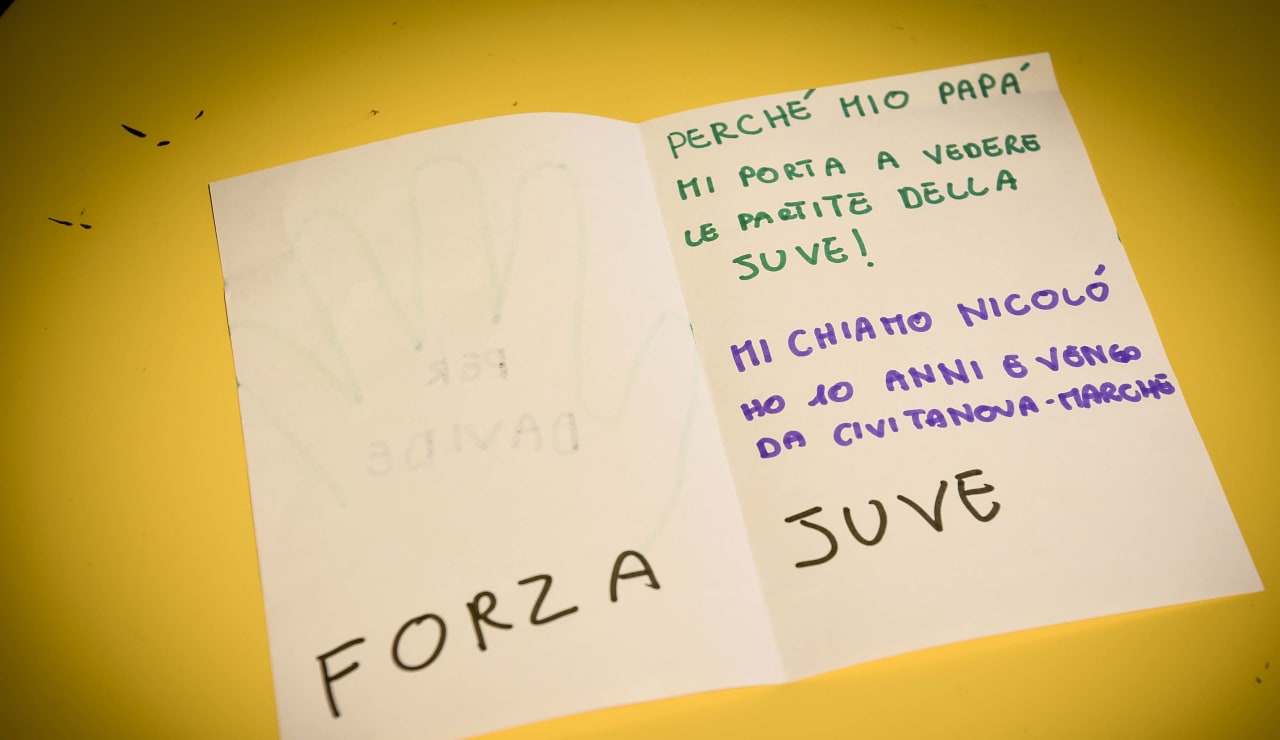 PERCHÉ MIO PAPÁ
MI PORTA A VEDERE
LE PARTITE DELLA
JUVE!
MI CHIAMO NICOLÓ
HO 10 ANNI E VENGO
DA CIVITANOVA-MARCHE
PER
DAVIDE
FORZA JUVE